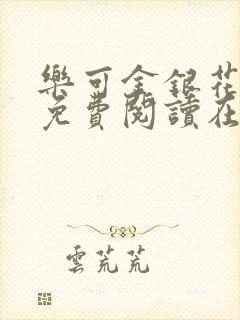 樂可金銀花
免費閱讀在
雲荒荒